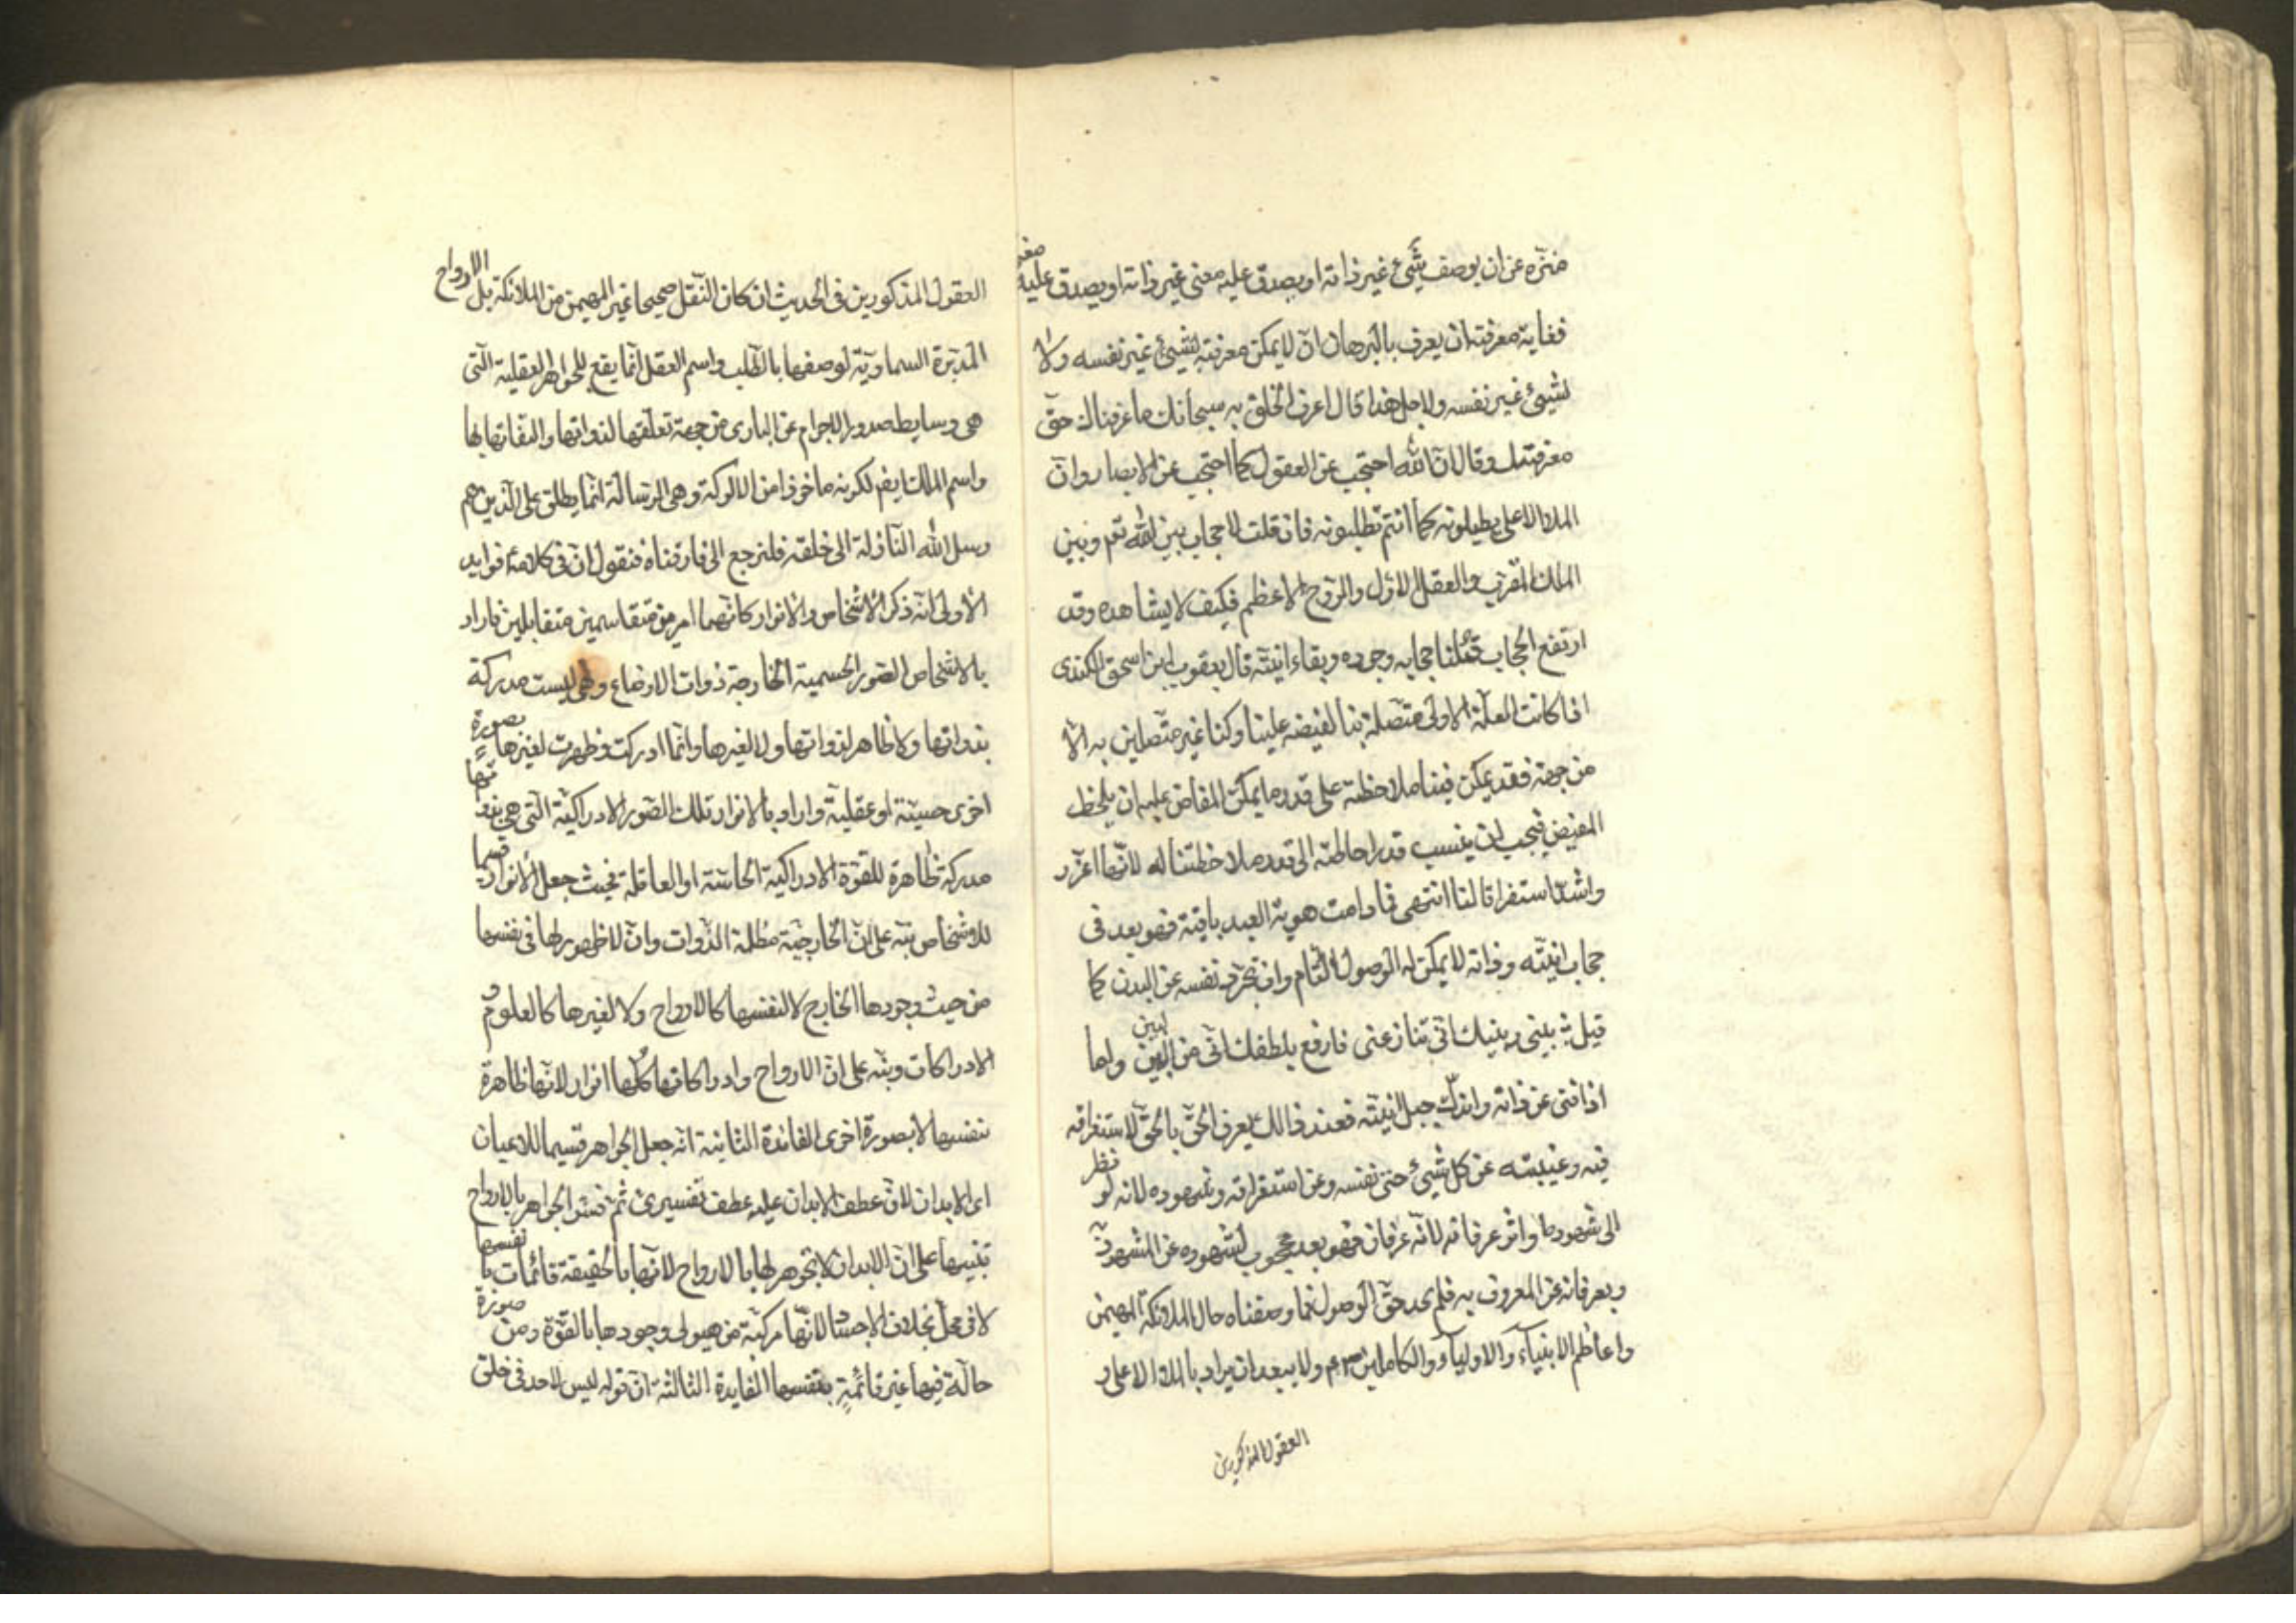 منزه عن ان يوصف بشیء غير ذاته او يصدق عليه معنى غير ذاته او يصدق عليه معنى
فغاية معرفته ان يعرف بالبرهان ان لا يمكن معرفته لشیء غير نفسه ولا
لشیء غير نفسه ولاجل هذا قال اعرف الخلق به سبحانك ما عرفناك حق
معرفتك وقال ان الله احتجب عن العقول كما احتجب عن الابصار وان
الملاء الاعلى يطلبونه كما انتم تطلبونه فان قلت لا حجاب بين الله تعم وبين
الملك المقرب والعقل الاول والروح الاعظم فكيف لا يشاهده وقد
ارتفع الحجاب قلنا حجابه وجوده وبقاء انيته قال يعقوب ابن اسحق الكندى
اذا كانت العلة الاولى متصلة بنا لفيضه علينا وكنا غير متصلين به الا
من جهة فقد يمكن فينا ملاحظته على قدر ما يمكن المفاض عليه ان يلحظ
المفيض فيجب ان ينسب قدر احاطته الى قدر ملاحظتنا له لانها اغزر
واشد استغراقا لنا انتهى فما دامت هوية العبد باقية فهو بعد فى
حجاب انيته وذاته لا يمكن له الوصول التام وان تجرد نفسه عن البدن كما
قيل بينى وبينك انى تنازعنى فارفع بلطفك انى من البين واما
اذا فنى عن ذاته واندك جبل انيته فعند ذالك يعرف الحق بالحق لاستغراقه
فيه وغيبته عن كل شیء حتى نفسه وعن استغراقه وشهوده لانه لو نظر
الى شهوده واثر عرفانه لانه عرفان فهو بعد محجوب لشهوده عن المشهود
وبعرفانه عن المعروف به فلم يجد حق الوصول فما وصفناه حال الملائكة المهيمن
واعاظم الانبياء والاولياء والكاملين ولا يبعد ان يراد بالملاء الاعلى و
العقول المذكورين
العقول المذكورين فى الحديث ان كان النقل صحيحا غير المهيمن من الملائكة بل الارواح
المدبرة السماوية لوصفها بالطلب واسم العقل انما يقع للجواهر العقلية التى
هى وسايط صدور الاجرام عن البارى من جهة تعلقها لذواتها والتفاتها بها
واسم الملك ايض لكونه ماخوذا من الالوكة وهى الرسالة انما يطلق على الذين هم
رسل الله النازلة الى خلقه فلنرجع الى فارقناه فنقول ان فى كلامه فوايد
الاولى انه ذكر الاشخاص والانوار كانهما امرين متقاسمين متقابلين فاراد
بالاشخاص الصور الجسمية الخارجة ذوات الاوضاع وهى ليست مدركة
بذواتها ولا ظاهر لذواتها ولا لغيرها وانما ادركت وظهرت لغيرها بصورة
اخرى حسية او عقلية واراد بالانوار تلك الصور الادراكية التى هى بذواتها
مدركة ظاهرة للقوة الادراكية الحاسة او العاقلة فحيث جعل الانوار قسيما
للاشخاص نبه على ان الخارجية مظلمة الذوات وان لا ظهور لها فى نفسها
من حيث وجودها الخارج لا لنفسها كالارواح ولا لغيرها كالعلوم و
الادراكات ونبه على ان الارواح وادراكاتها كلها انوار لانها ظاهرة
بنفسها لا بصورة اخرى الفائدة الثانية انه جعل الجواهر قسيما للاعيان
اى الابدان لان عطف الابدان عليه عطف تفسيرى ثم فسر الجواهر بالارواح
تنبيها على ان الابدان لا تجوهر لها بالارواح لانها بالحقيقة قائمات بانفسها
لا فى محل بخلاف الاجساد لانها مركبة من هيولى وجودها بالقوة ومن صورة
حالة فيها غير قائمة بنفسها الفايدة الثالثة ان قوله ليس لاحد فى خلق